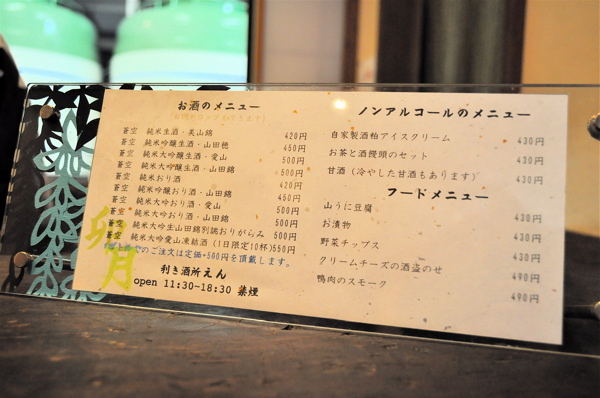 お酒のメニュー
蒼空 純米生酒・美山錦 420円
蒼空 純米吟醸生酒・山田穂 450円
蒼空 純米大吟醸生酒・愛山 500円
蒼空 純米大吟醸生酒・山田錦 500円
蒼空 純米おり酒 420円
蒼空 純米吟醸おり酒・山田錦 450円
蒼空 純米大吟おり酒・愛山 500円
蒼空 純米大吟おり酒・山田錦 500円
蒼空 純米大吟生山田錦別誂おりがらみ 500円
蒼空 純米大吟愛山凍結酒(1日限定10杯)550円
のご注文は定価+500円を頂戴します。
卯月
利き酒所えん
open 11:30~18:30 禁煙
ノンアルコールのメニュー
自家製酒粕アイスクリーム 430円
お茶と酒饅頭のセット 430円
甘酒(冷やした甘酒もあります) 430円
フードメニュー
山うに豆腐 430円
お漬物 430円
野菜チップス 430円
クリームチーズの酒盗のせ 490円
鴨肉のスモーク 490円